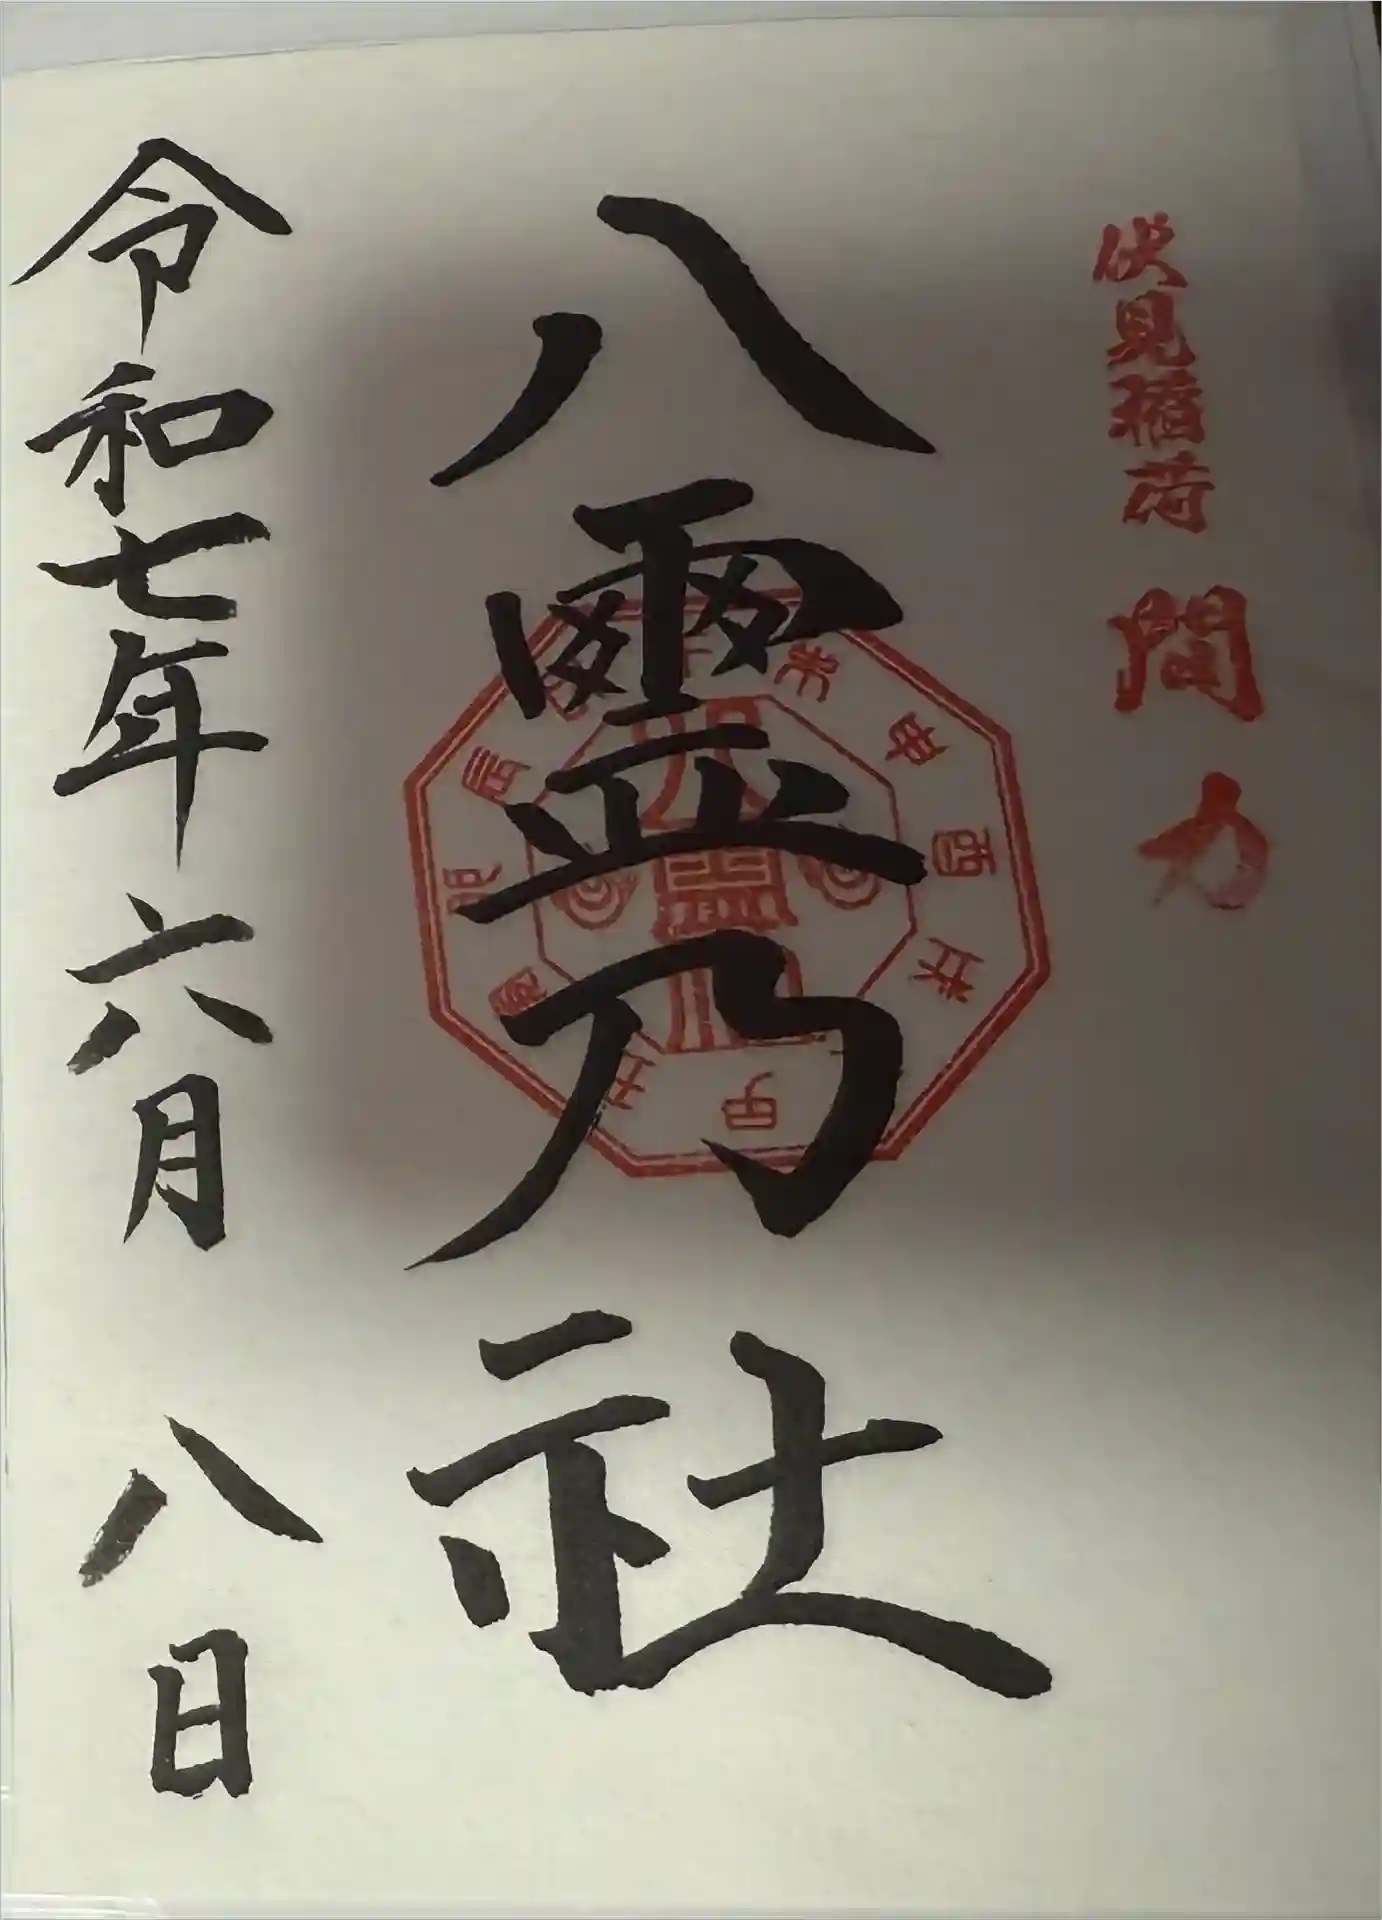 伏見稲荷 間力
八霊乃社
令和七年六月八日